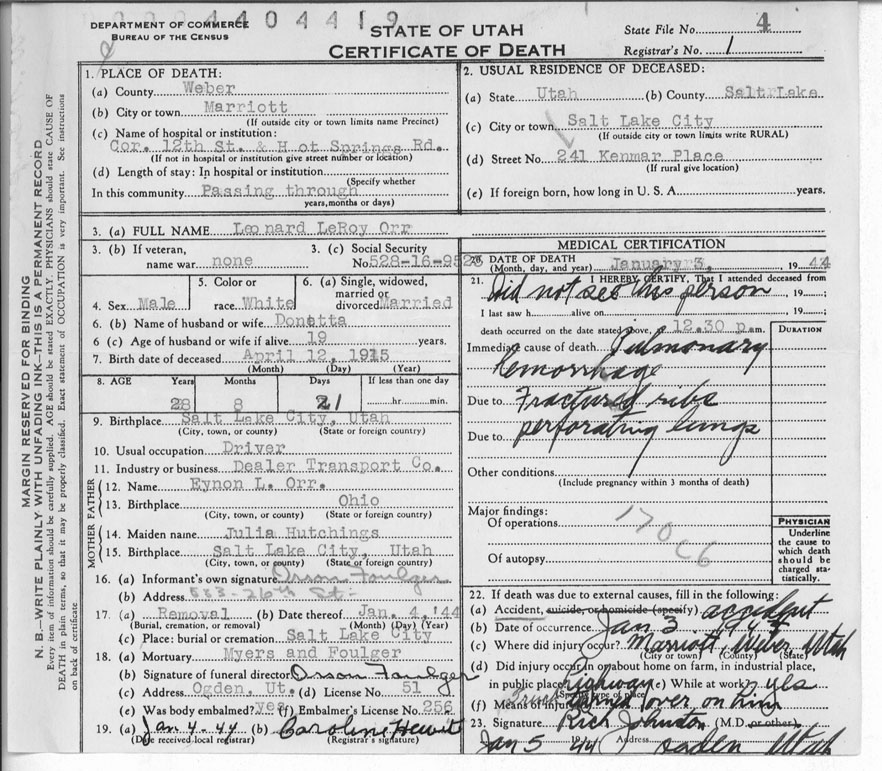 0004404419
DEPARTMENT OF COMMERCE
BUREAU OF THE CENSUS
STATE OF UTAH
CERTIFICATE OF DEATH
State File No. 4
Registrar's No. 1
MARGIN RESERVED FOR BINDING
N. B.—WRITE PLAINLY WITH UNFADING INK—THIS IS A PERMANENT RECORD
Every item of information should be carefully supplied. AGE should be stated EXACTLY. PHYSICIANS should state CAUSE OF
DEATH in plain terms, so that it may be properly classified. Exact statement of OCCUPATION is very important. See instructions
on back of certificate
1. PLACE OF DEATH:
(a) County Weber
(b) City or town Marriott
(If outside city or town limits name Precinct)
(c) Name of hospital or institution:
Cor. 12th St. & Hot Springs Rd.
(If not in hospital or institution give street number or location)
(d) Length of stay: In hospital or institution
(Specify whether
In this community Passing through
years, months or days)
2. USUAL RESIDENCE OF DECEASED:
(a) State Utah (b) County Salt Lake
(c) City or town Salt Lake City
(If outside city or town limits write RURAL)
(d) Street No. 241 Kenmar Place
(If rural give location)
(e) If foreign born, how long in U. S. A. years.
3. (a) FULL NAME Leonard LeRoy Orr
3. (b) If veteran, name war none
3. (c) Social Security No. 528-16-9528
4. Sex Male
5. Color or race White
6. (a) Single, widowed, married or divorced Married
6. (b) Name of husband or wife Donetta
6 (c) Age of husband or wife if alive 19 years.
7. Birth date of deceased April 12, 1915
(Month) (Day) (Year)
8. AGE Years Months Days If less than one day
28 8 21 hr. min.
9. Birthplace Salt Lake City, Utah
(City, town, or county) (State or foreign country)
10. Usual occupation Driver
11. Industry or business Dealer Transport Co.
FATHER
12. Name Eynon L. Orr.
13. Birthplace Ohio
(City, town, or county) (State or foreign country)
MOTHER
14. Maiden name Julia Hutchings
15. Birthplace Salt Lake City, Utah
(City, town, or county) (State or foreign country)
16. (a) Informant's own signature Orson Foulger
(b) Address 26th St.
17. (a) Removal (b) Date thereof Jan. 4, '44
(Burial, cremation, or removal) (Month) (Day) (Year)
(c) Place: burial or cremation Salt Lake City
18. (a) Mortuary Myers and Foulger
(b) Signature of funeral director Orson Foulger
(c) Address Ogden, Ut. (d) License No. 51
(e) Was body embalmed? yes (f) Embalmer's License No. 256
19. (a) Jan 4-44 (b) Caroline Hewit
(Date received local registrar) (Registrar's signature)
MEDICAL CERTIFICATION
20. DATE OF DEATH
(Month, day, and year) January 3, 1944
21. I HEREBY CERTIFY, That I attended deceased from
Did not see this person 19
I last saw h alive on 19
death occurred on the date stated above, 12.30 p.m.
DURATION
Immediate cause of death Pulmonary
Hemorrhage
Due to Fractured ribs
Due to perforating lungs
Other conditions
(Include pregnancy within 3 months of death)
Major findings:
Of operations
170 C6
Of autopsy
PHYSICIAN
Underline
the cause to
which death
should be
charged sta-
tistically.
22. If death was due to external causes, fill in the following:
(a) Accident, suicide, or homicide (specify) accident
(b) Date of occurrence Jan 3 1944
(c) Where did injury occur? Marriott, Weber, Utah
(City or town) (County) (State)
(d) Did injury occur in or about home on farm, in industrial place,
in public place, highway (e) While at work? yes
(Specify type of place)
(f) Means of injury Truck turned over on him
23. Signature Rich Johnston (M.D. or other)
Jan 5 1944 Address Ogden Utah